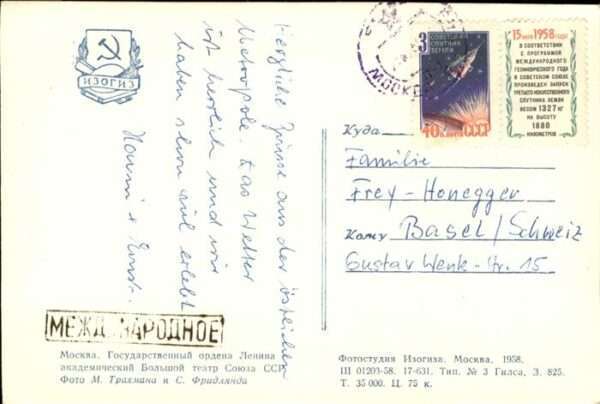 ИЗОГИЗ
Herzliche Grüsse aus der östlichen
Metropole. Das Wetter
ist herrlich und wir
haben schon viel erlebt
Hanni & Ernst.
МЕЖДУНАРОДНОЕ
Москва. Государственный ордена Ленина
академический Большой театр Союза ССР
Фото М. Трахмана и С. Фридлянда
МОСКВА
3
СОВЕТСКИЙ
СПУТНИК
ЗЕМЛИ
40 КОП. СССР
15 мая 1958 года
В СООТВЕТСТВИИ
С ПРОГРАММОЙ
МЕЖДУНАРОДНОГО
ГЕОФИЗИЧЕСКОГО ГОДА
В СОВЕТСКОМ СОЮЗЕ
ПРОИЗВЕДЕН ЗАПУСК
ТРЕТЬЕГО ИСКУССТВЕННОГО
СПУТНИКА ЗЕМЛИ
ВЕСОМ 1327 КГ
НА ВЫСОТУ
1880
КИЛОМЕТРОВ
Куда
Familie
Frey-Honegger
Кому Basel/Schweiz
Gustav Wenk-Str. 15
Фотостудия Изогиза. Москва, 1958.
Ш 01203-58. 17-631. Тип. № 3 Гипса. З. 825
Т. 35 000. Ц. 75 к.